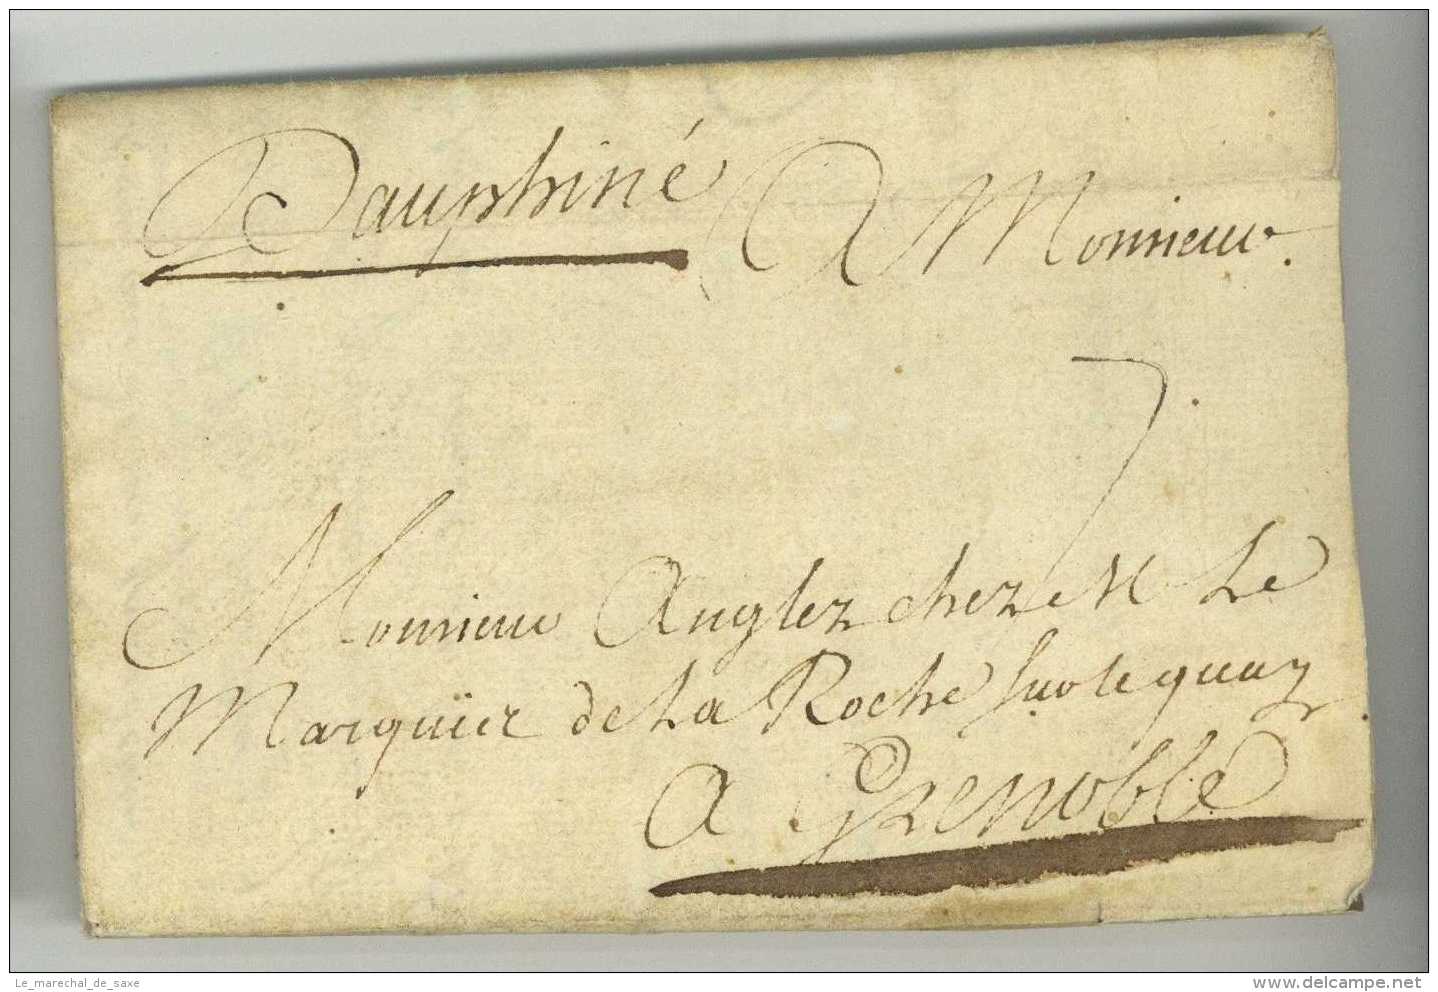 Dauphiné A Monsieur.
7
Monsieur Anglez chez M Le
Marquiez de La Roche sur le quay
A Grenoble
Le_marechal_de_saxe
delcampe.net